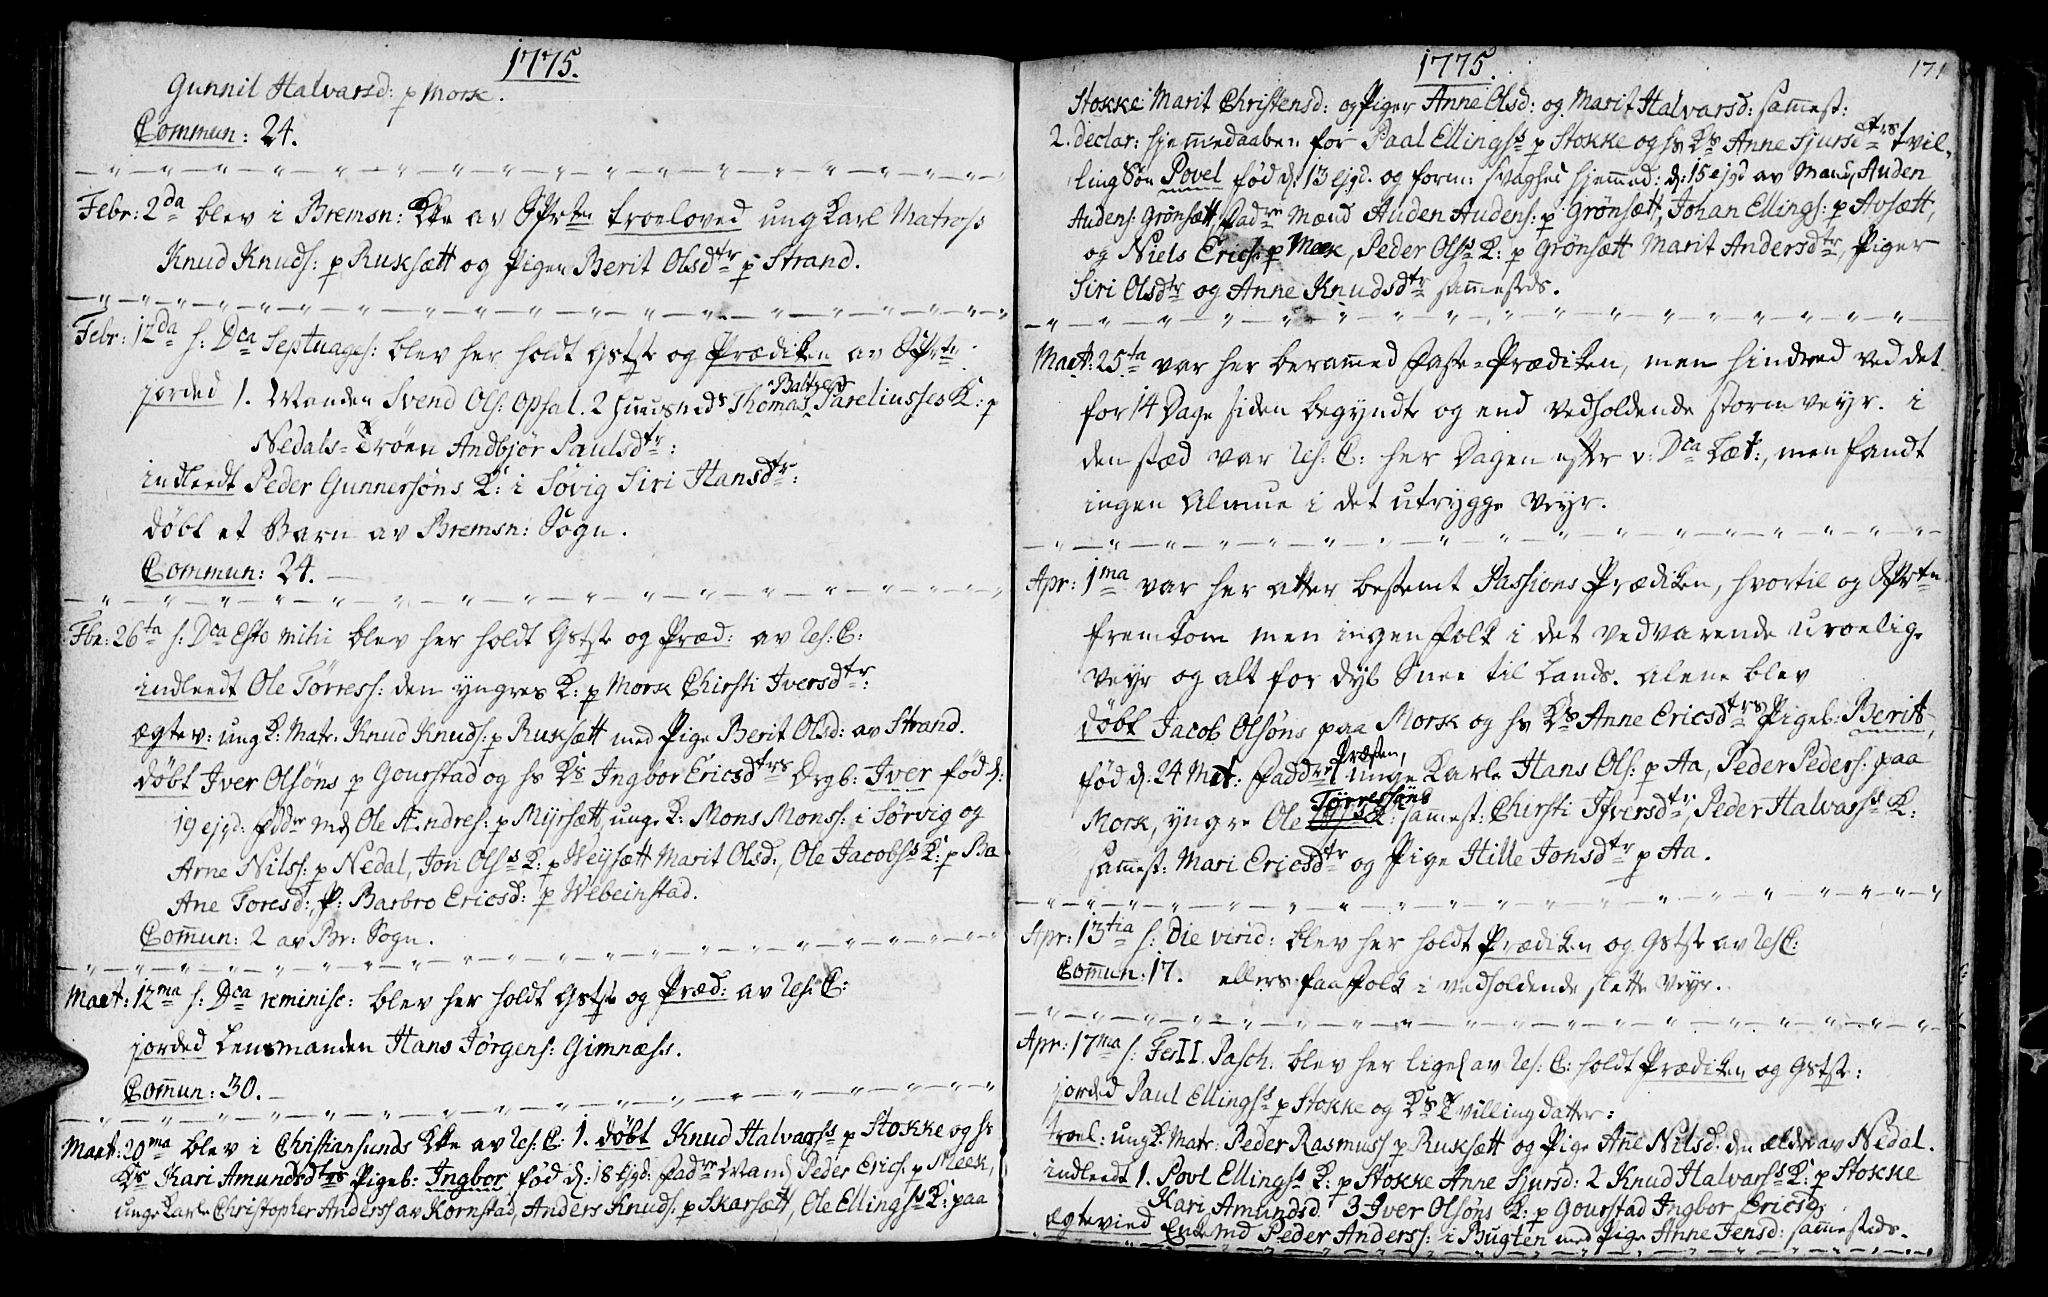 1775.
Gunnil Halvarsd: p Mork.
Commun: 24.
Febr: 2da blev i Bremsn: Kke av SPrten troeloved ung Karl Matross
Knud Knuds: p Ruksætt og Pigen Berit Olsdtr p Strand.
Febr: 12da s: Dca Septuages: blev her holdt Gstste og Prædiken av SPrten
jorded 1. Manden Svend Ols: Opsal. 2 Huusmds Thomas Baltzers Pareliusses K: p
Nedals-Trøen Andbjør Paulsdtr:
indleedt Peder Gunnersøns K: i Søvig Siri Hansdtr:
døbt et Barn av Bremsn: Sogn.
Commun: 24.
Fbr: 26ta s: Dca Esto mihi blev her holdt Gstste og Præd: av Res: C:
indleedt Ole Tørress: den yngres K: p Mork Chirsti Iversdtr:
ægtev: ung K: Matr: Knud Knuds: p Ruksætt med Pige Berit Olsd: av Strand.
døbt Iver Olsøns p Gourstad og hs Ks Ingbor Ericsdtrs Drgb: Iver fød d:
19 ejgd: Fddr Md Ole Ændres: p Myrsætt, unge K: Mons Monss: i Sørvig og
Arne Nilss: p Nedal, Jon Olss K: p Weysætt Marit Olsd:, Ole Jacobss K: p Ba
Ane Toresd:, P: Barbro Ericsd: p Webeinstad.
Comun: 2 av Br: Sogn.
Mart: 12ma s: Dca reminisc: blev her holdt Gstste og Præd: av Res: C:
jorded Lensmanden Hans Jørgens: Gimnæss.
Comun: 30.
Mart: 20ma blev i Christiansunds Kke av Res: C: 1. døbt Knud Halvarss p Stokke og hs
Ks Kari Amundsdtrs Pigeb: Ingbor fød d: 18 ejgd: Fadre Mand Peder Erics: p Meek,
unge Karle Christopher Anderss av Kornstad, Anders Knuds: p Skarsætt, Ole Ellingss K: paa
1775.
171
Stokke Marit Christensd: og Piger Anne Olsd: og Marit Halvarsd: samest:
2. declar: hjemmedaaben for Paal Ellingss p Stokke og hs Ks Anne Sjursdtrs tvil-
ling Søn Povel fød d: 13 ejgd. og form: svaghed hjemmed: d: 15 ejgd av Mand Auden
Audens: Grønsætt, Fadre Mænd Auden Audens: p Grønsætt, Johan Ellings: p Avsætt,
og Niels Erics: p Meek, Peder Olss K: p Grønsætt Marit Andersdtr, Piger
Siri Olsdtr og Anne Knudsdtr samesteds.
Mart: 25ta var her beramed Faste-Prædiken, men hindred ved det
for 14 Dage siden begyndte og end vedholdende storm veyr. i
den stæd var Res: C: her Dagen efter v: Dca Læt:, men fandt
ingen Almue i det utrygge veyr.
Apr: 1ma var her atter bestemt Passions Prædiken, hvortil og SPrten
fremkom men ingen folk i det vedvarende uroelige
veyr og alt for dyb Snee til Lands. alene blev
døbt Jacob Olsøns paa Mork og hs Ks Anne Ericsdtrs Pigeb: Berit,
fød d: 24 Mrt: Faddre Præsten, unge Karle Hans Ols: p Aa, Peder Peders: paa
Mork, yngre Ole Tørressøns K: samest: Chirsti Ifversdtr, Peder Halvarss K:
samest: Mari Ericsdtr og Pige Hille Jonsdtr p Aa.
Apr: 13tia s: die virid: blev her holdt Prædiken og Gstste av Res C:
Comun: 17. ellers faa folk i vedholdende slette veyr.
Apr: 17ma s: Fer II. Pasch. blev her liges av Res: C: holdt Prædiken og Gstste:
jorded Paul Ellingss p Stokke og Ks Tvilling datter:
troel: ung K: Matr: Peder Rasmuss p Ruksætt og Pige Anne Nilsd: den ældre av Nedal.
indleedt 1. Povl Ellingss K: p Stokke Anne Sjursd: 2 Knud Halvarss K: p Stokke
Kari Amundsd 3 Iver Olsøns K: p Gourstad Ingbor Ericsd,
ægtevied Enkemd Peder Anderss: i Bugten med Pige Anne Jensd: samesteds.